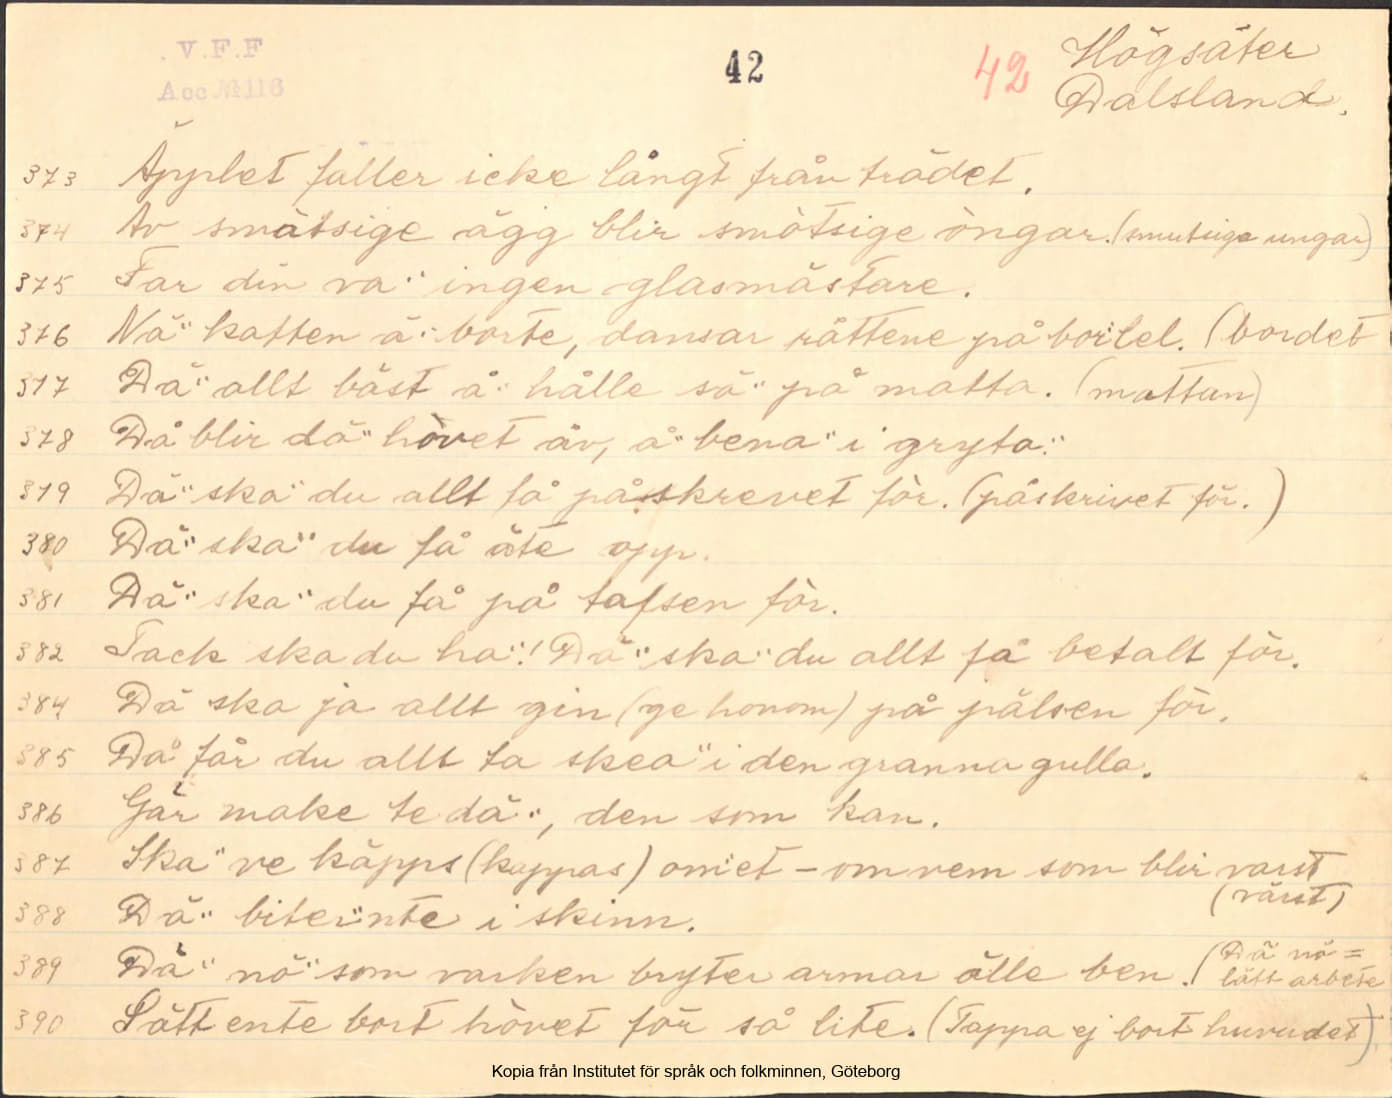 V.F.F
Acc № 116
42
42
Högsäter
Dalsland.
373 Äpplet faller icke långt från trädet.
374 Av smötsige ägg blir smötsige òngar. (smutsiga ungar)
375 Far din va" ingen glasmästare.
376 Nä" katten ä" borte, dansar råttene på bor"lel. (bordet
377 Dä" allt bäst å" hålle sä" på matta. (mattan)
378 Då blir dä" hòvet äv, å" bena" i gryta"
379 Dä" ska" du allt få påskrevet för. (påskrivet för.)
380 Dä" ska" du få äte opp.
381 Dä" ska" du få på tafsen för.
382 Tack ska du ha"! Dä" ska" du allt få betalt för.
384 Dä ska ja allt gin (ge honom) på pälsen för.
385 Då får du allt ta skea" i den granna gulla.
386 Gär make te dä", den som kan.
387 Ska" ve käpps (kappas) om"et - om vem som blir varst
(värst)
388 Dä" biter"nte i skinn.
389 Dä" nö" som varken bryter armar älle ben. (Dä nö =
lätt arbete
390 Sätt ente bort hòvet för så lite. (Tappa ej bort huvudet)
Kopia från Institutet för språk och folkminnen, Göteborg